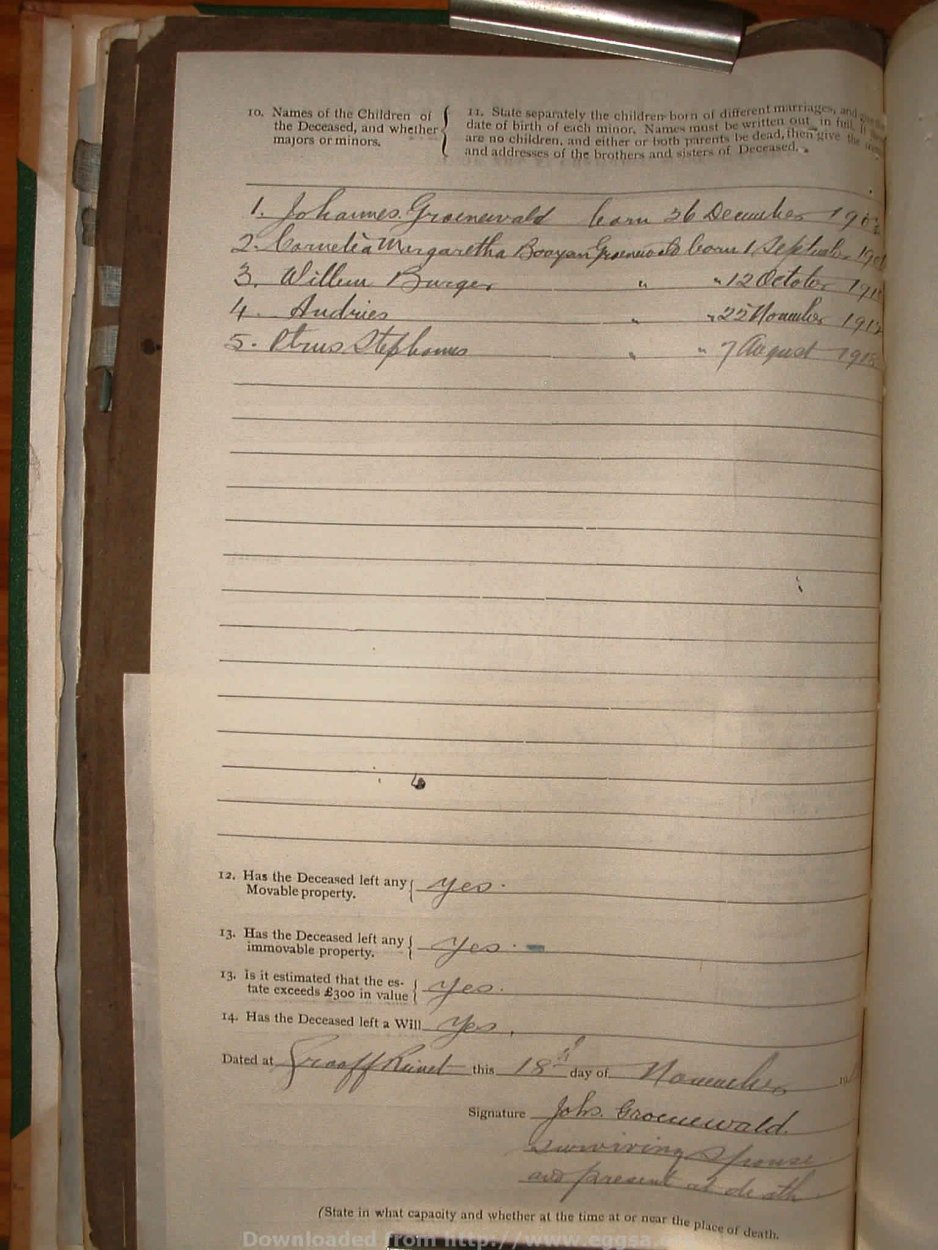 10. Names of the Children of the Deceased, and whether majors or minors.
11. State separately the children born of different marriages, and give the
date of birth of each minor. Names must be written out in full. If there
are no children, and either or both parents be dead, then give the names
and addresses of the brothers and sisters of Deceased.
1. Johannes Groenewald born 26 December 190
2. Cornelia Margaretha Booysen Groenewald born 1 September 190
3. Willem Burger " " 12 October 191
4. Andries " " 22 November 191
5. Petrus Stephanus " " 7 August 1918
12. Has the Deceased left any Movable property. Yes.
13. Has the Deceased left any immovable property. Yes.
13. Is it estimated that the estate exceeds £300 in value Yes.
14. Has the Deceased left a Will Yes.
Dated at Graaff Reinet this 18th day of November 19
Signature Johs. Groenewald.
surviving spouse
and present at death
(State in what capacity and whether at the time at or near the place of death.
Downloaded from http://www.eggsa.